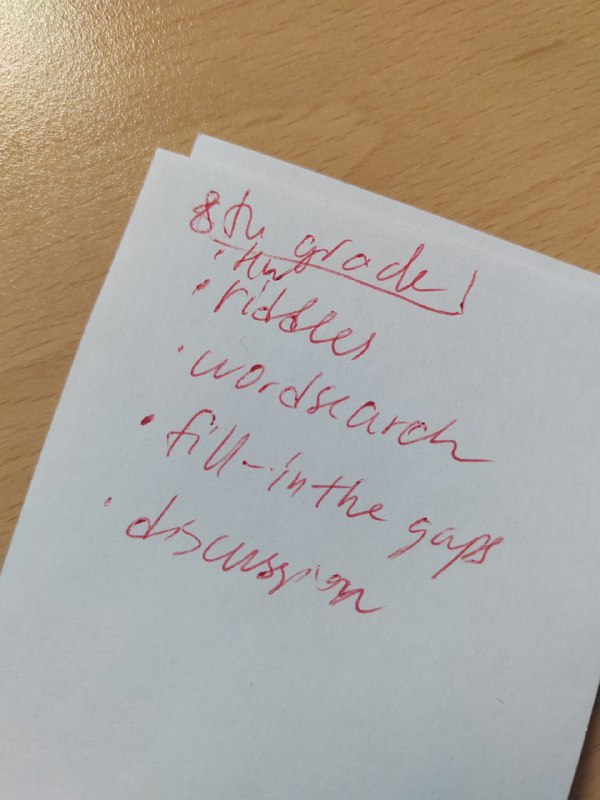 8th grade!
· HW
· riddles
· wordsearch
· fill-in the gaps
· discussion